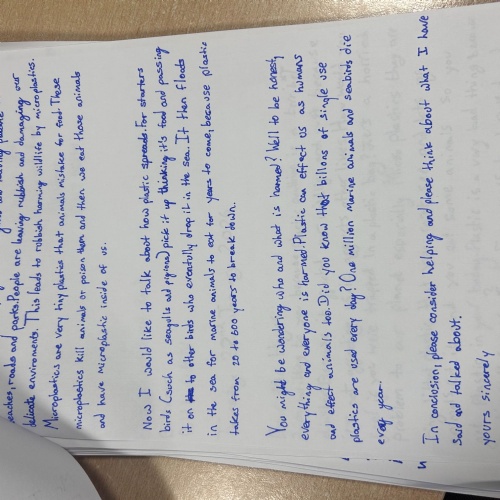 beaches, roads and parks. People are leaving rubbish and damaging our
delicate enviroments. This leads to rubbish harming wildlife by microplastics.
Microplastics are very tiny plastics that animals mistake for food. These
microplastics kill animals or poison them and then we eat those animals
and have microplastic inside of us.
Now I would like to talk about how plastic spreads. For starters
birds (such as seagulls and pigions) pick it up thinking it's food and passing
it on to other birds who eventully drop it in the sea. It then floats
in the sea for marine animals to eat for years to come, because plastic
takes from 20 to 600 years to break down.
You might be wondering who and what is harmed? Well to be honest,
everything and everyone is harmed. Plastic can effect us as humans
and effect animals too. Did you know that billions of single use
plastics are used every day? One million marine animals and seabirds die
every year.
In conclusion, please consider helping and please think about what I have
said and talked about.
yours sincerely